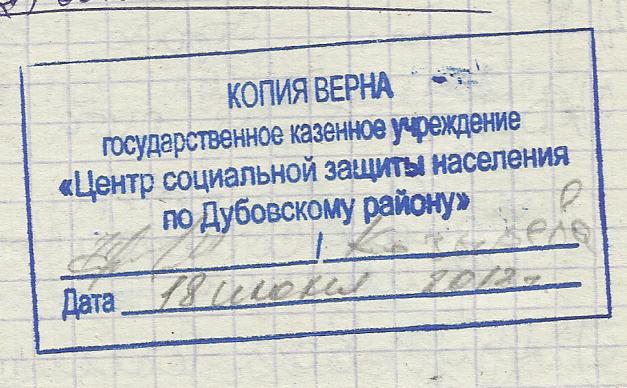 КОПИЯ ВЕРНА
государственное казенное учреждение
«Центр социальной защиты населения
по Дубовскому району»
/
Дата 18 июня